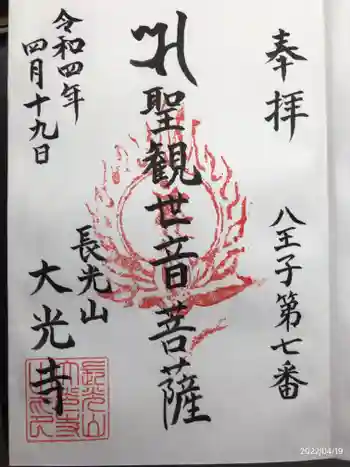 奉拝
八王子第七番
聖観世音菩薩
長光山
大光寺
令和四年
四月十九日
2022/04/19